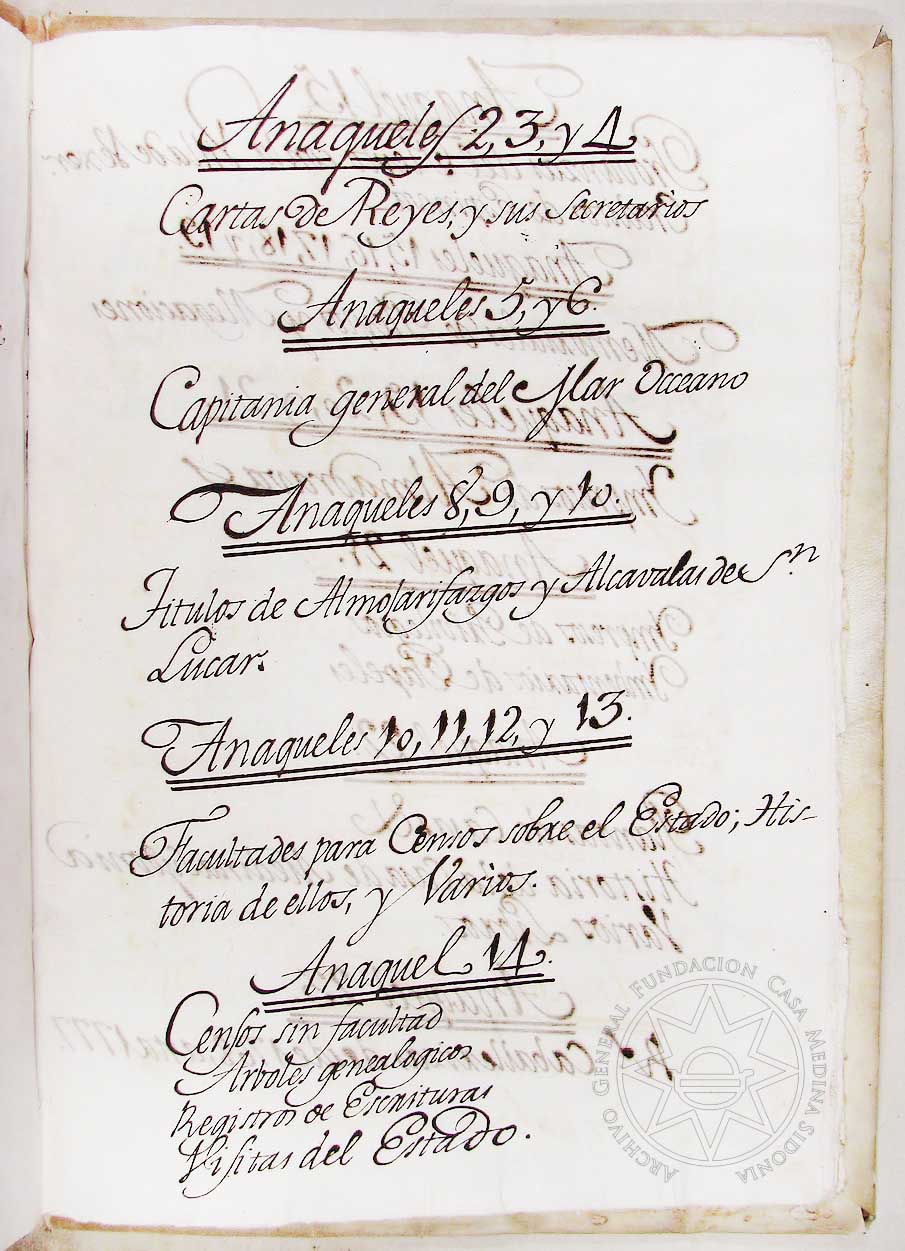 Anaqueles 2, 3, y 4
Cartas de Reyes, y sus Secretarios
Anaqueles 5, y 6.
Capitania general del Mar Occeano
Anaqueles 8, 9, y 10.
Titulos de Almojarifazgos y Alcavalas de Sn
Lucar.
Anaqueles 10, 11, 12, y 13.
Facultades para Censos sobre el Estado; His-
toria de ellos, y Varios.
Anaquel 14.
Censos sin facultad
Arboles genealogicos
Registros de Escrituras
Visitas del Estado.
ARCHIVO GENERAL FUNDACION CASA MEDINA SIDONIA